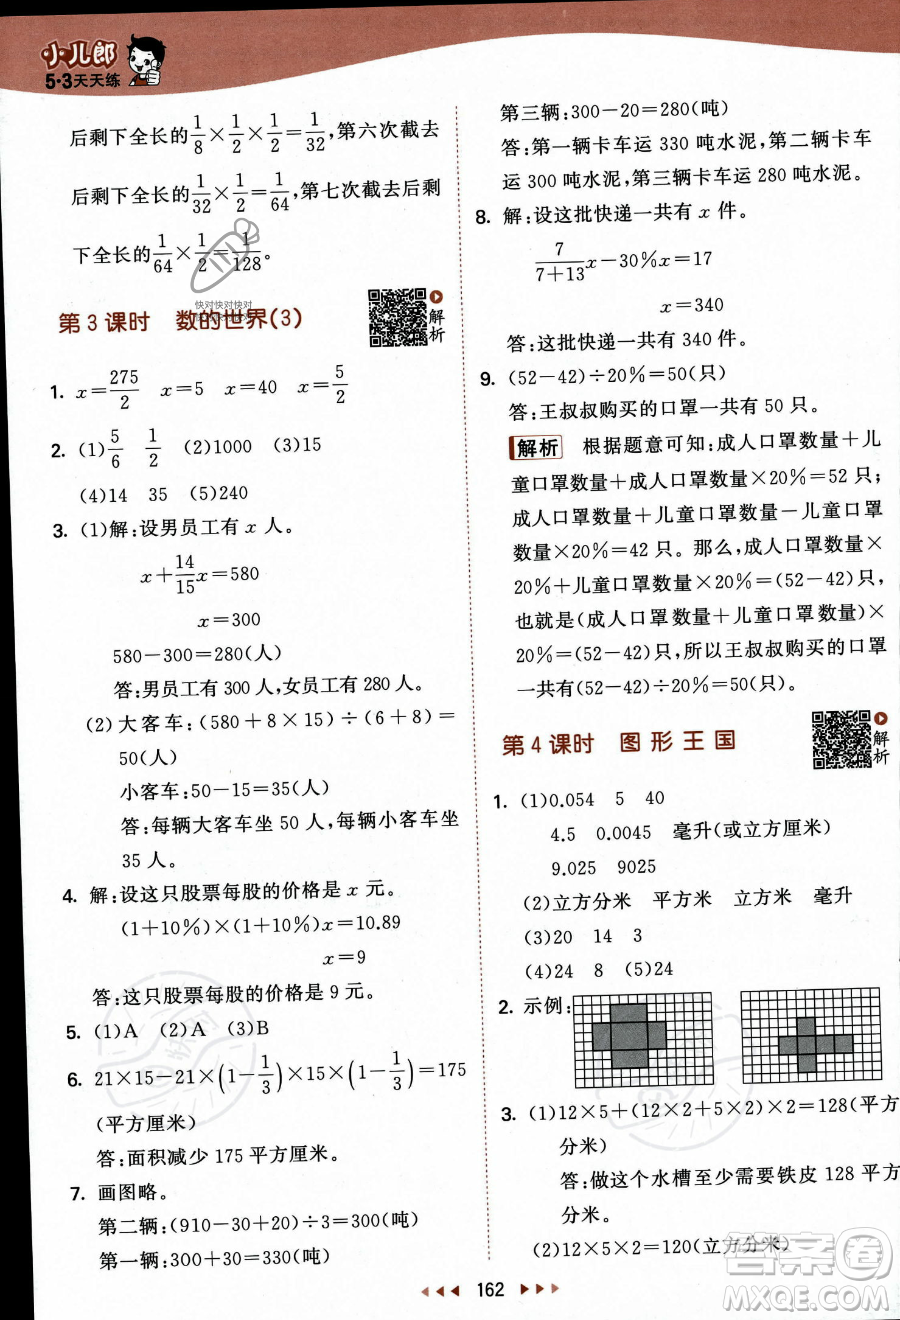 小儿郎
5·3天天练
后剩下全长的1/8×1/2×1/2=1/32,第六次截去
后剩下全长的1/32×1/2=1/64,第七次截去后剩
下全长的1/64×1/2=1/128。
第3课时 数的世界(3)
解析
1. x=275/2 x=5 x=40 x=5/2
2. (1)5/6 1/2 (2)1000 (3)15
(4)14 35 (5)240
3. (1)解:设男员工有 x 人。
x+14/15x=580
x=300
580-300=280(人)
答:男员工有 300 人,女员工有 280 人。
(2)大客车:(580+8×15)÷(6+8)=
50(人)
小客车:50-15=35(人)
答:每辆大客车坐 50 人,每辆小客车坐
35 人。
4. 解:设这只股票每股的价格是 x 元。
(1+10%)×(1+10%)x=10.89
x=9
答:这只股票每股的价格是 9 元。
5. (1)A (2)A (3)B
6. 21×15-21×(1-1/3)×15×(1-1/3)=175
(平方厘米)
答:面积减少 175 平方厘米。
7. 画图略。
第二辆:(910-30+20)÷3=300(吨)
第一辆:300+30=330(吨)
第三辆:300-20=280(吨)
答:第一辆卡车运 330 吨水泥,第二辆卡车
运 300 吨水泥,第三辆卡车运 280 吨水泥。
8. 解:设这批快递一共有 x 件。
7/(7+13)x-30%x=17
x=340
答:这批快递一共有 340 件。
9. (52-42)÷20%=50(只)
答:王叔叔购买的口罩一共有 50 只。
解析 根据题意可知:成人口罩数量+儿
童口罩数量+成人口罩数量×20%=52 只,
成人口罩数量+儿童口罩数量-儿童口罩
数量×20%=42 只。那么,成人口罩数量×
20%+儿童口罩数量×20%=(52-42)只,
也就是(成人口罩数量+儿童口罩数量)×
20%=(52-42)只,所以王叔叔购买的口罩
一共有(52-42)÷20%=50(只)。
第4课时 图形王国
解析
1. (1)0.054 5 40
4.5 0.0045 毫升(或立方厘米)
9.025 9025
(2)立方分米 平方米 立方米 毫升
(3)20 14 3
(4)24 8 (5)24
2. 示例:
3. (1)12×5+(12×2+5×2)×2=128(平方
分米)
答:做这个水槽至少需要铁皮 128 平方
分米。
(2)12×5×2=120(立方分米)
162
快对快对快对
答案圈